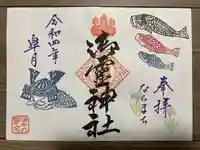 奉拝
ならまち
御霊神社
令和四年
皐月